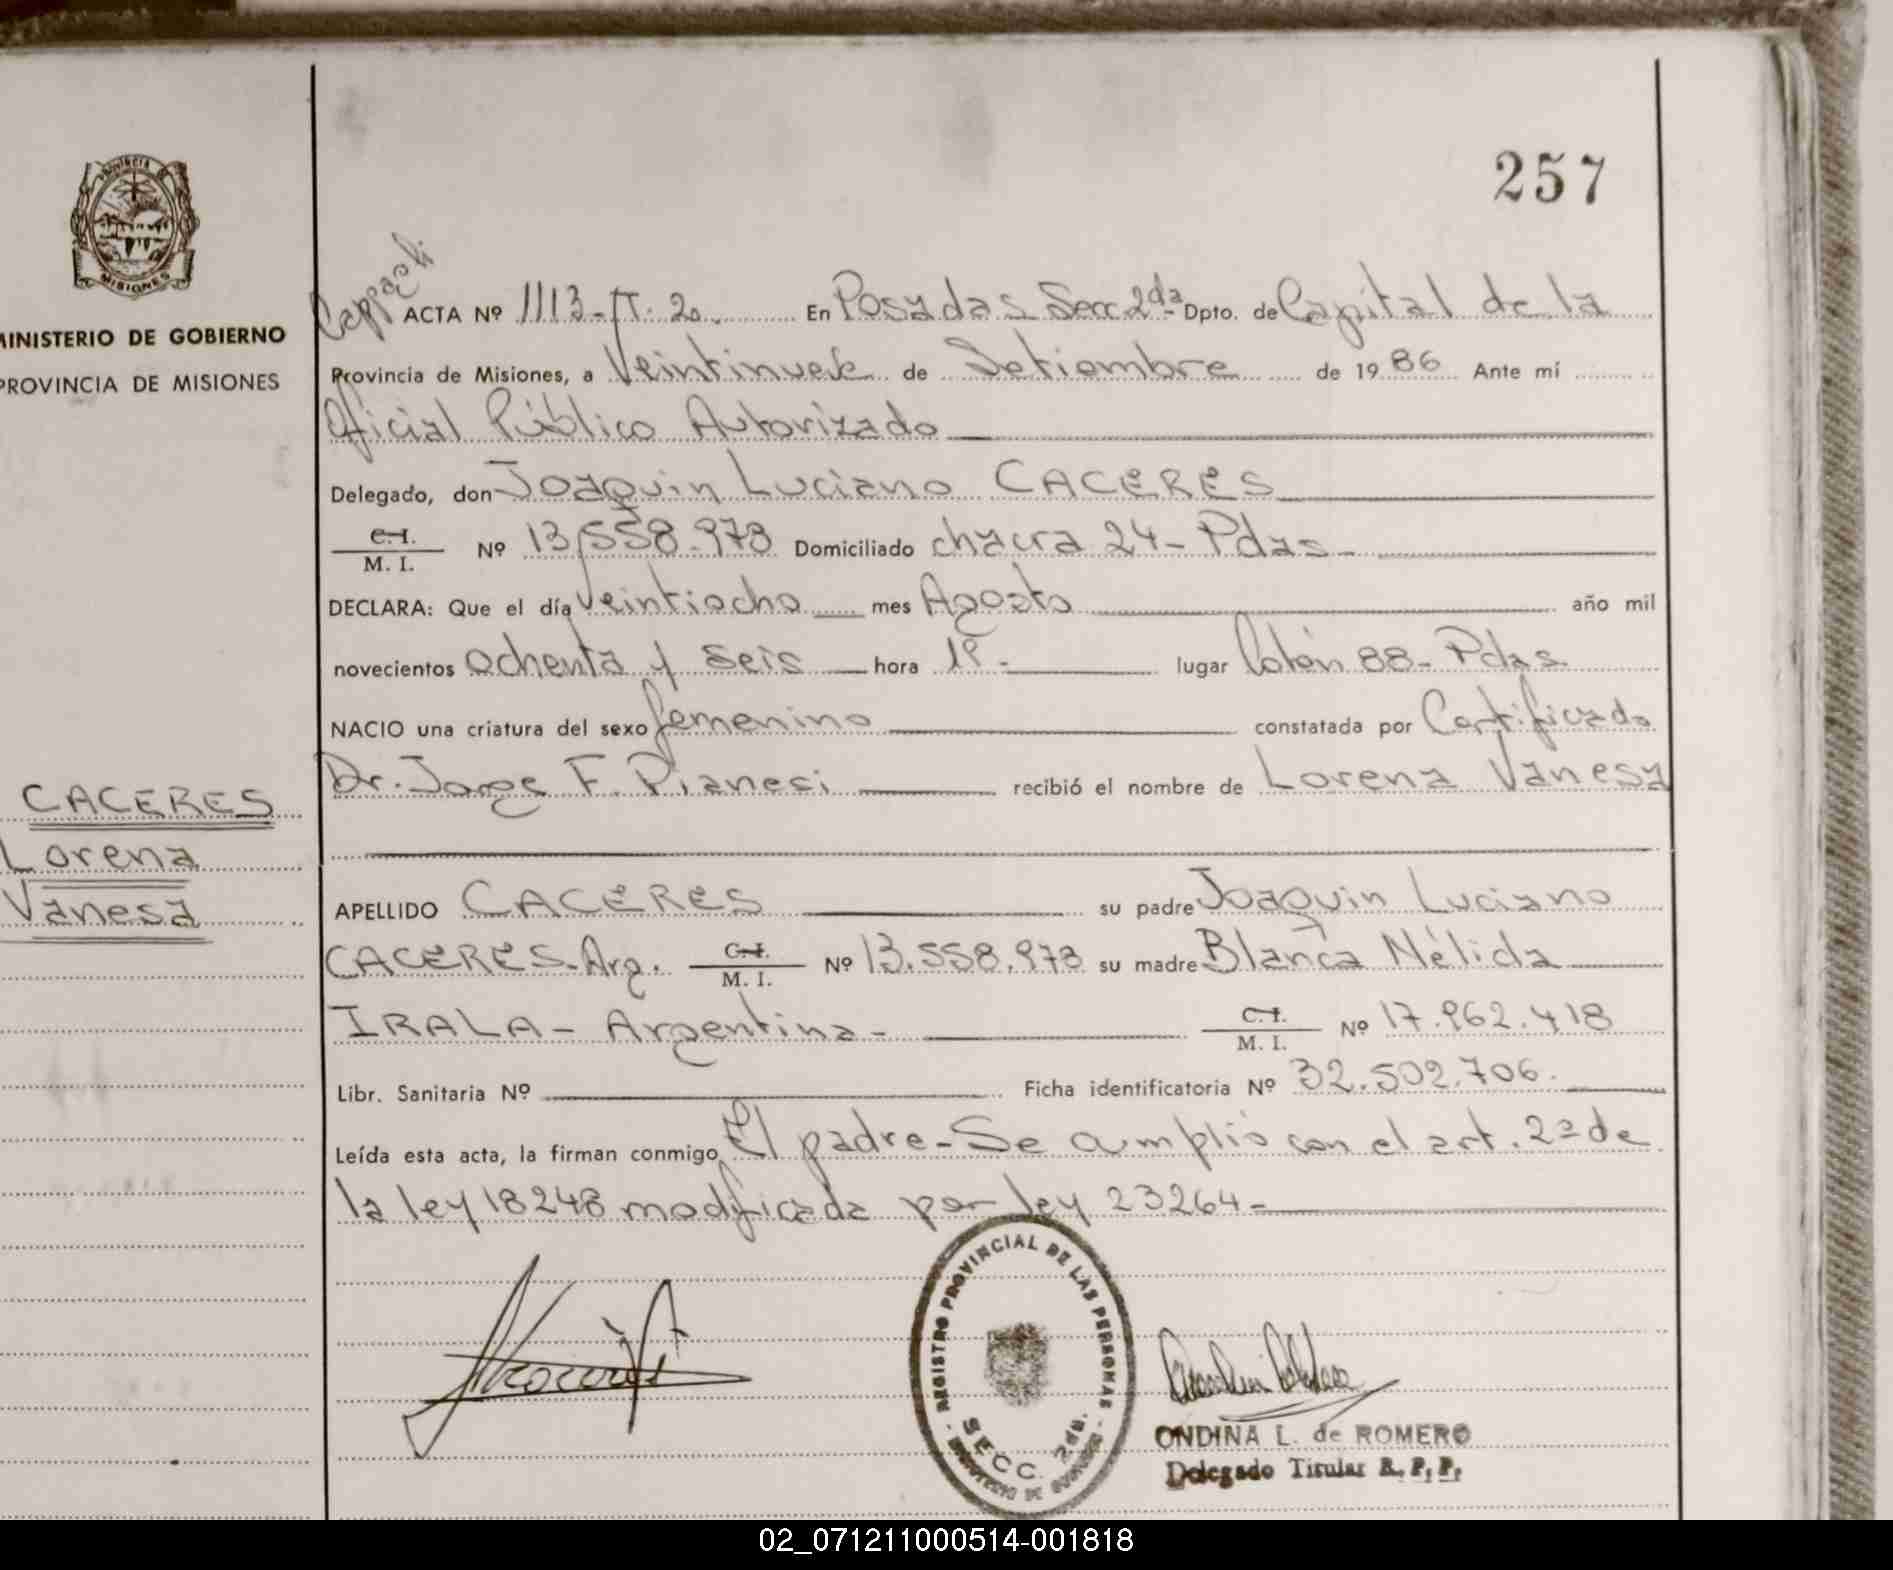 257
Provincia de
MISIONES
MINISTERIO DE GOBIERNO
PROVINCIA DE MISIONES
CACERES
Lorena
Vanesa
ACTA Nº 1113-T. 20. En Posadas Secc 2da- Dpto. de Capital de la
Provincia de Misiones, a Veintinueve de Setiembre de 1986 Ante mí
Oficial Público Autorizado
Delegado, don Joaquin Luciano CACERES
C.I. M. I. Nº 13.558.973 Domiciliado chacra 24- Pdas-
DECLARA: Que el día veintiocho mes Agosto año mil
novecientos ochenta y seis hora lugar Colón 88- Pdas.
NACIO una criatura del sexo femenino constatada por Certificado
Dr. Jorge F. Pianesi recibió el nombre de Lorena Vanesa
APELLIDO CACERES su padre Joaquin Luciano
CACERES-Arg. C.I. M. I. Nº 13.558.973 su madre Blanca Nélida
IRALA- Argentina- C.I. M. I. Nº 17.962.418
Libr. Sanitaria Nº Ficha identificatoria Nº 32.502.706.
Leída esta acta, la firman conmigo El padre-Se cumplió con el art. 2º de
la ley 18248 modificada por ley 23264-
REGISTRO PROVINCIAL DE LAS PERSONAS
SECC. 2da.
MINISTERIO DE GOBIERNO
ONDINA L. de ROMERO
Delegado Titular R. P. P.
02_071211000514-001818